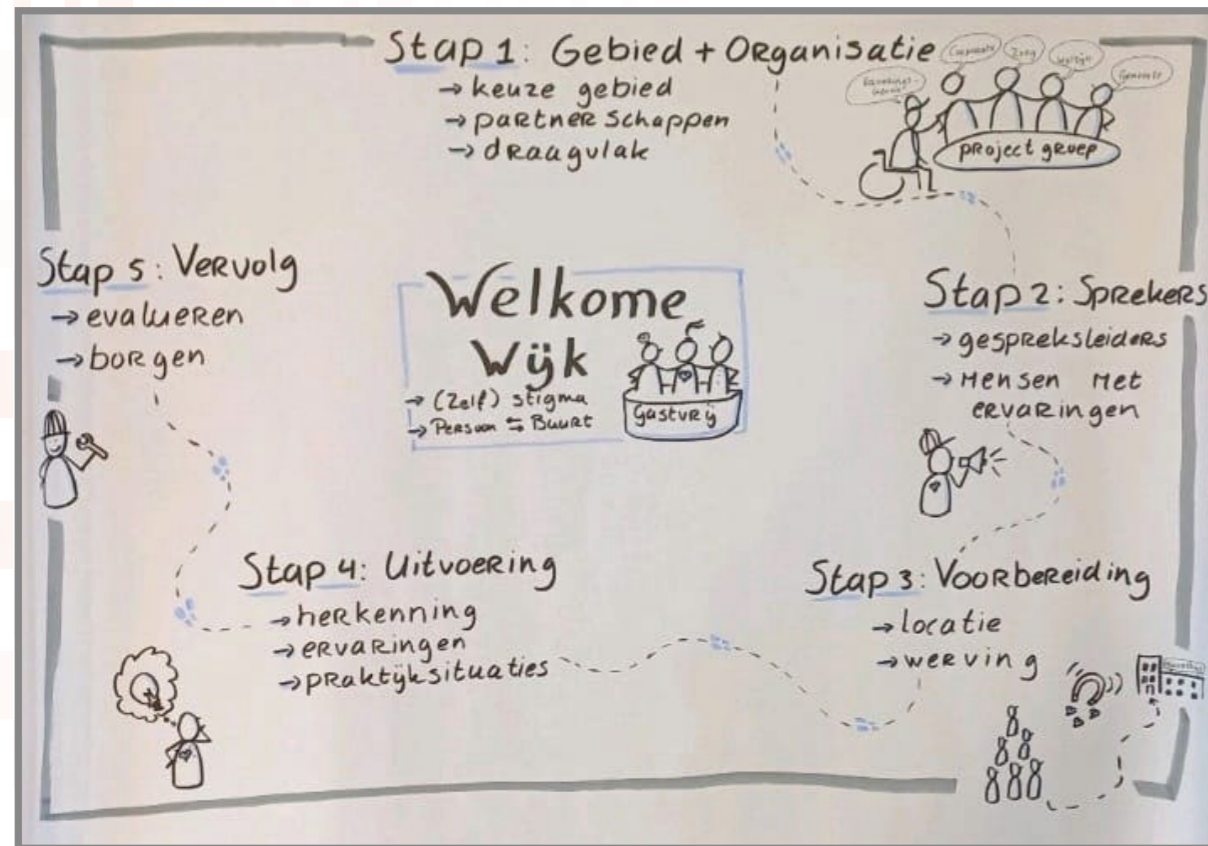 Stap 1: Gebied + Organisatie
→ keuze gebied
→ partnerschappen
→ draagvlak
Corporatie
Zorg
Welzijn
Gemeente
project groep
Stap 2: Sprekers
→ gespreksleiders
→ Mensen met
ervaringen
Stap 3: Voorbereiding
→ locatie
→ werving
Stap 4: Uitvoering
→ herkenning
→ ervaringen
→ praktijksituaties
Stap 5: Vervolg
→ evalueren
→ borgen
Welkome
Wijk
→ (Zelf) stigma
→ Persoon ⇆ Buurt
Gastvrij